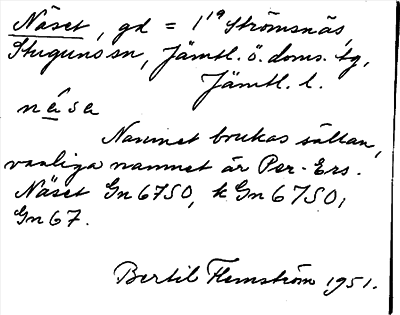 Näset, gd = 1¹⁹ Strömsnäs,
Stuguns sn, Jämtl. ö. doms. tg,
Jämtl. l.
nä̀sa
Namnet brukas sällan,
vanliga namnet är Per-Ers.
Näset Gn 6750, k Gn 6750,
Gn 67.
Bertil Flemström 1951.